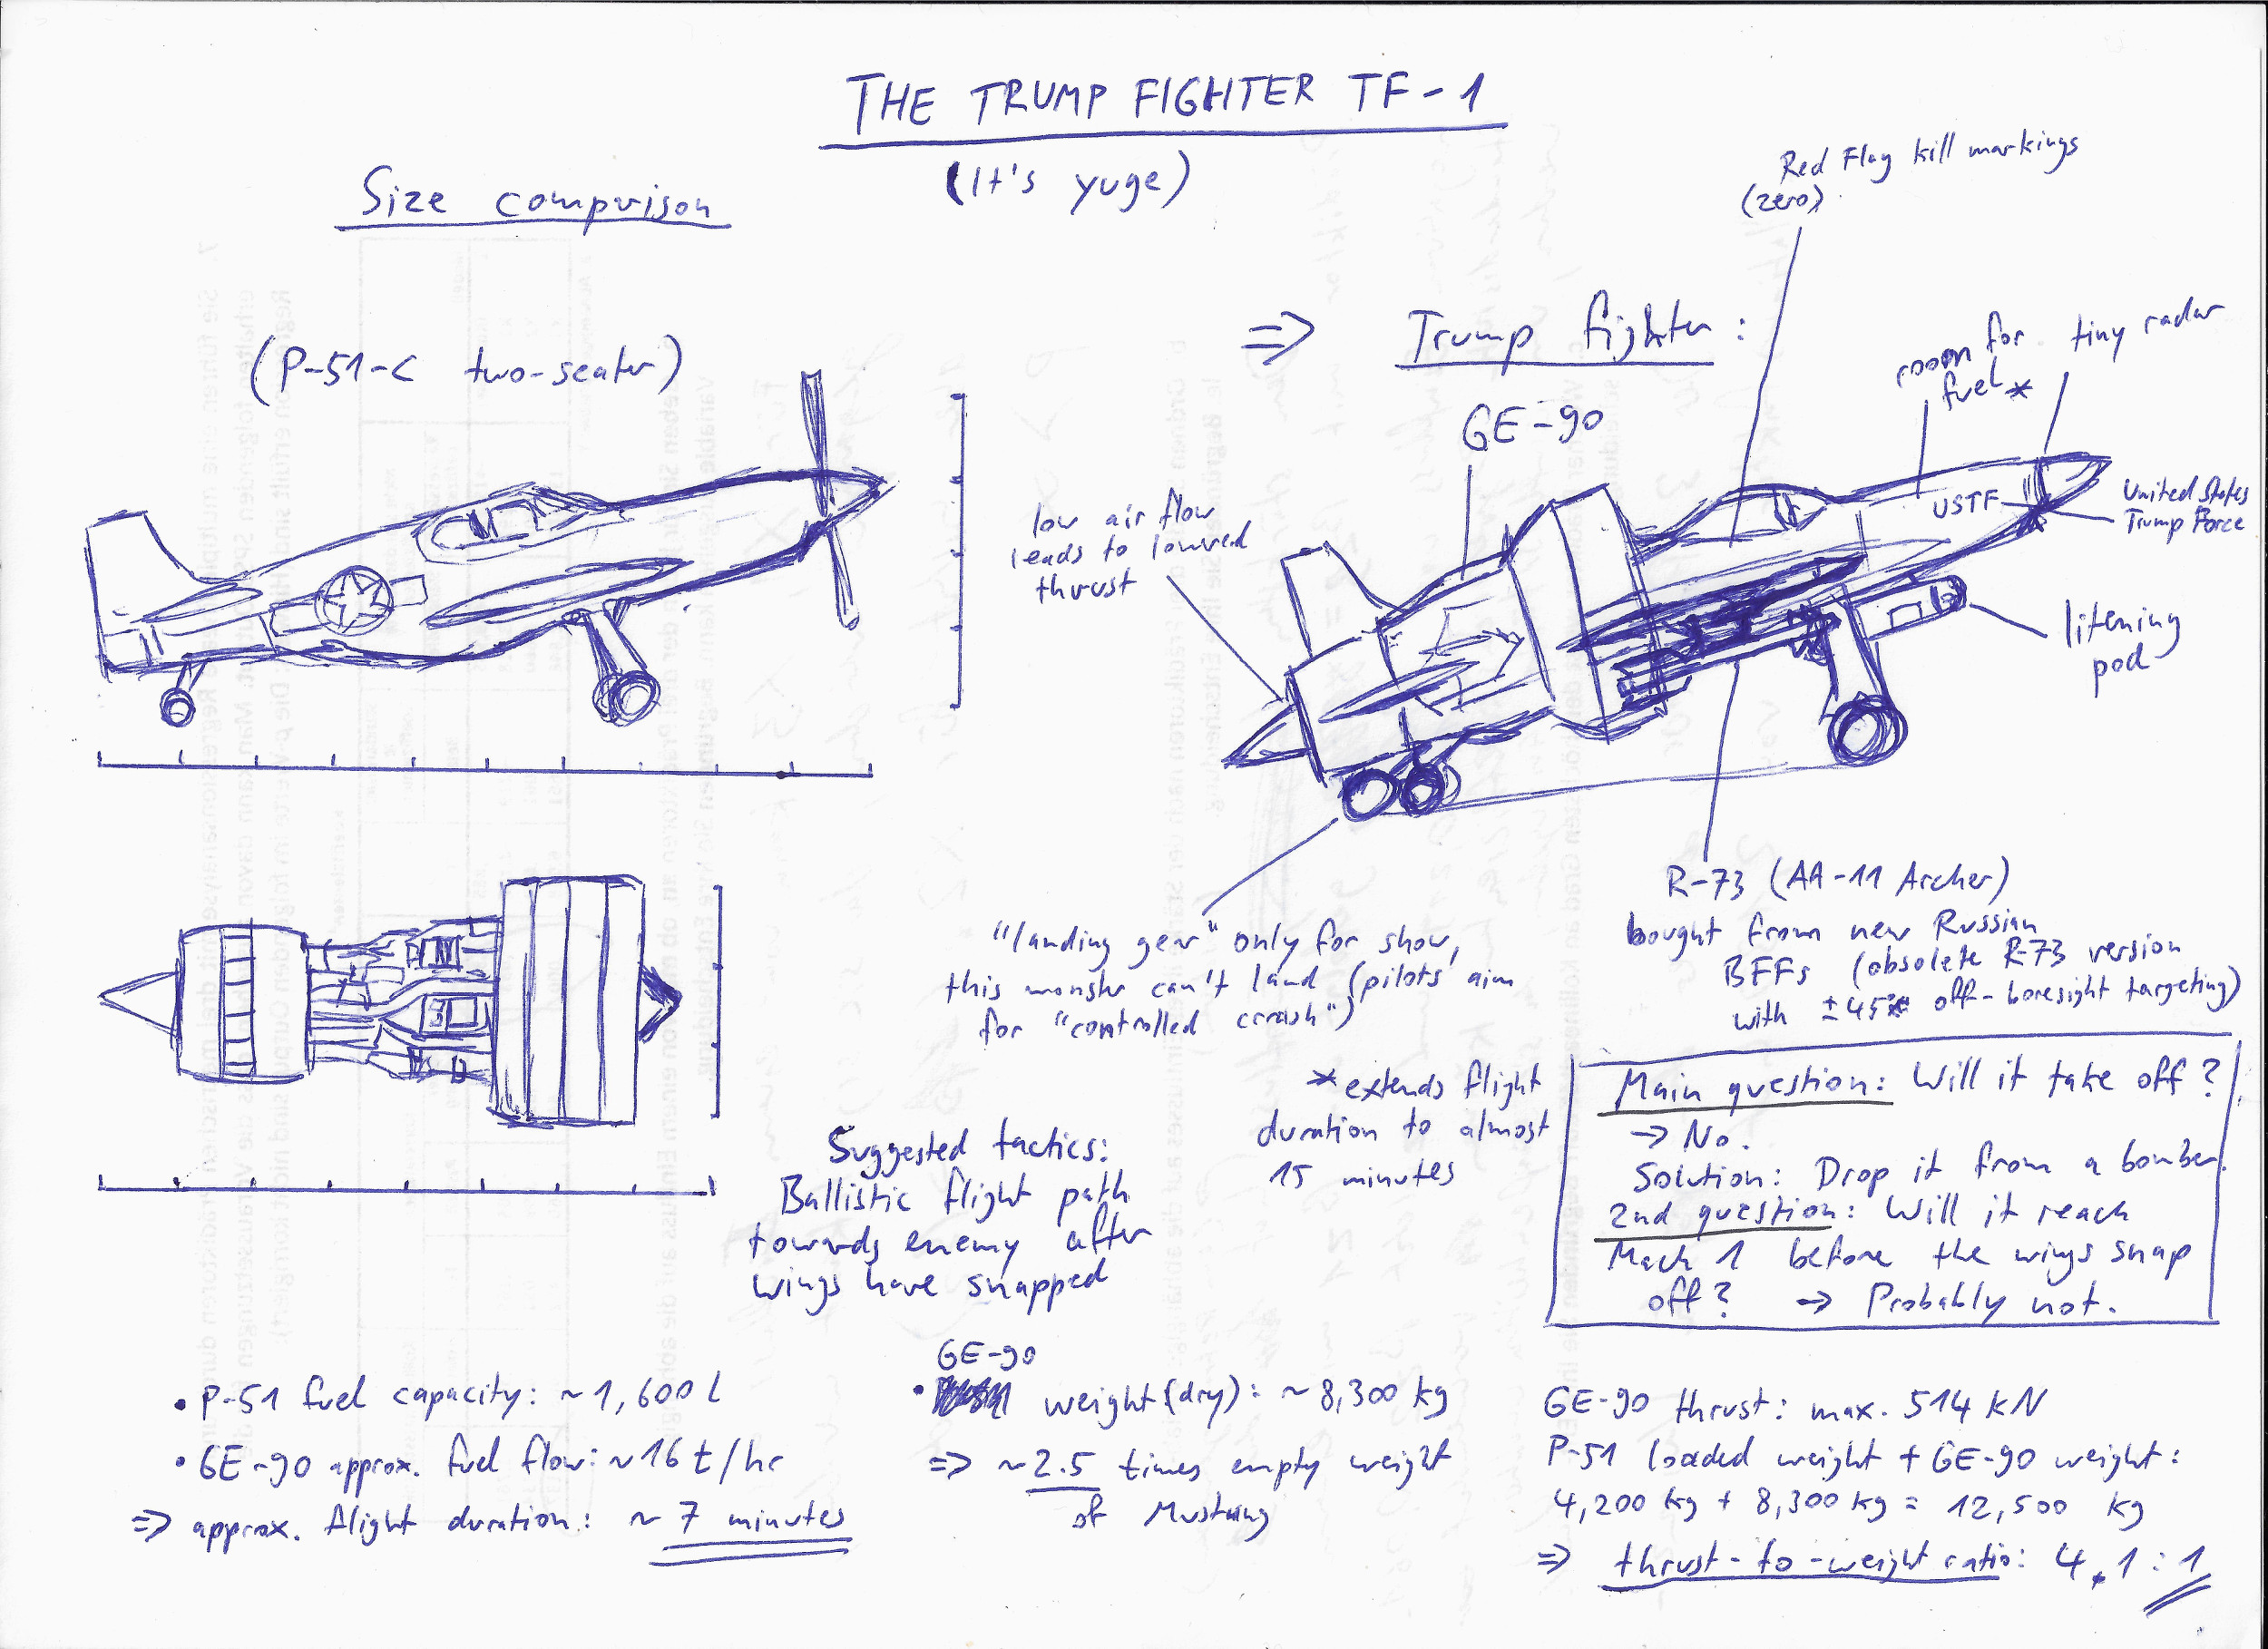 THE TRUMP FIGHTER TF-1
(It's yuge)
Size comparison
(P-51-C two-seater)
⇒ Trump fighter:
Red Flag kill markings
(zero)
room for
fuel*
tiny radar
GE-90
USTF
United States
Trump Force
low air flow
leads to lowered
thrust
litening
pod
"landing gear" only for show,
this monster can't land (pilots aim
for "controlled crrash")
R-73 (AA-11 Archer)
bought from new Russian
BFFs (obsolete R-73 version
with ±45° off-boresight targeting)
* extends flight
duration to almost
15 minutes
Suggested tactics:
Ballistic flight path
towards enemy after
wings have snapped
Main question: Will it take off?
→ No.
Solution: Drop it from a bomber.
2nd question: Will it reach
Mach 1 before the wings snap
off? → Probably not.
• P-51 fuel capacity: ~1,600 l
• GE-90 approx. fuel flow: ~16 t/hr
⇒ approx. flight duration: ~ 7 minutes
GE-90
• weight (dry): ~8,300 kg
⇒ ~2.5 times empty weight
of Mustang
GE-90 thrust: max. 514 kN
P-51 loaded weight + GE-90 weight:
4,200 kg + 8,300 kg = 12,500 kg
⇒ thrust-to-weight ratio: 4.1:1